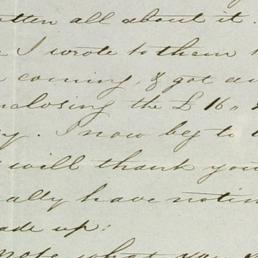 otten all about it.
I wrote to them
coming, & got an
nclosing the £16"
y. I now beg to
will thank you
ally have notin
ade up:
note what you